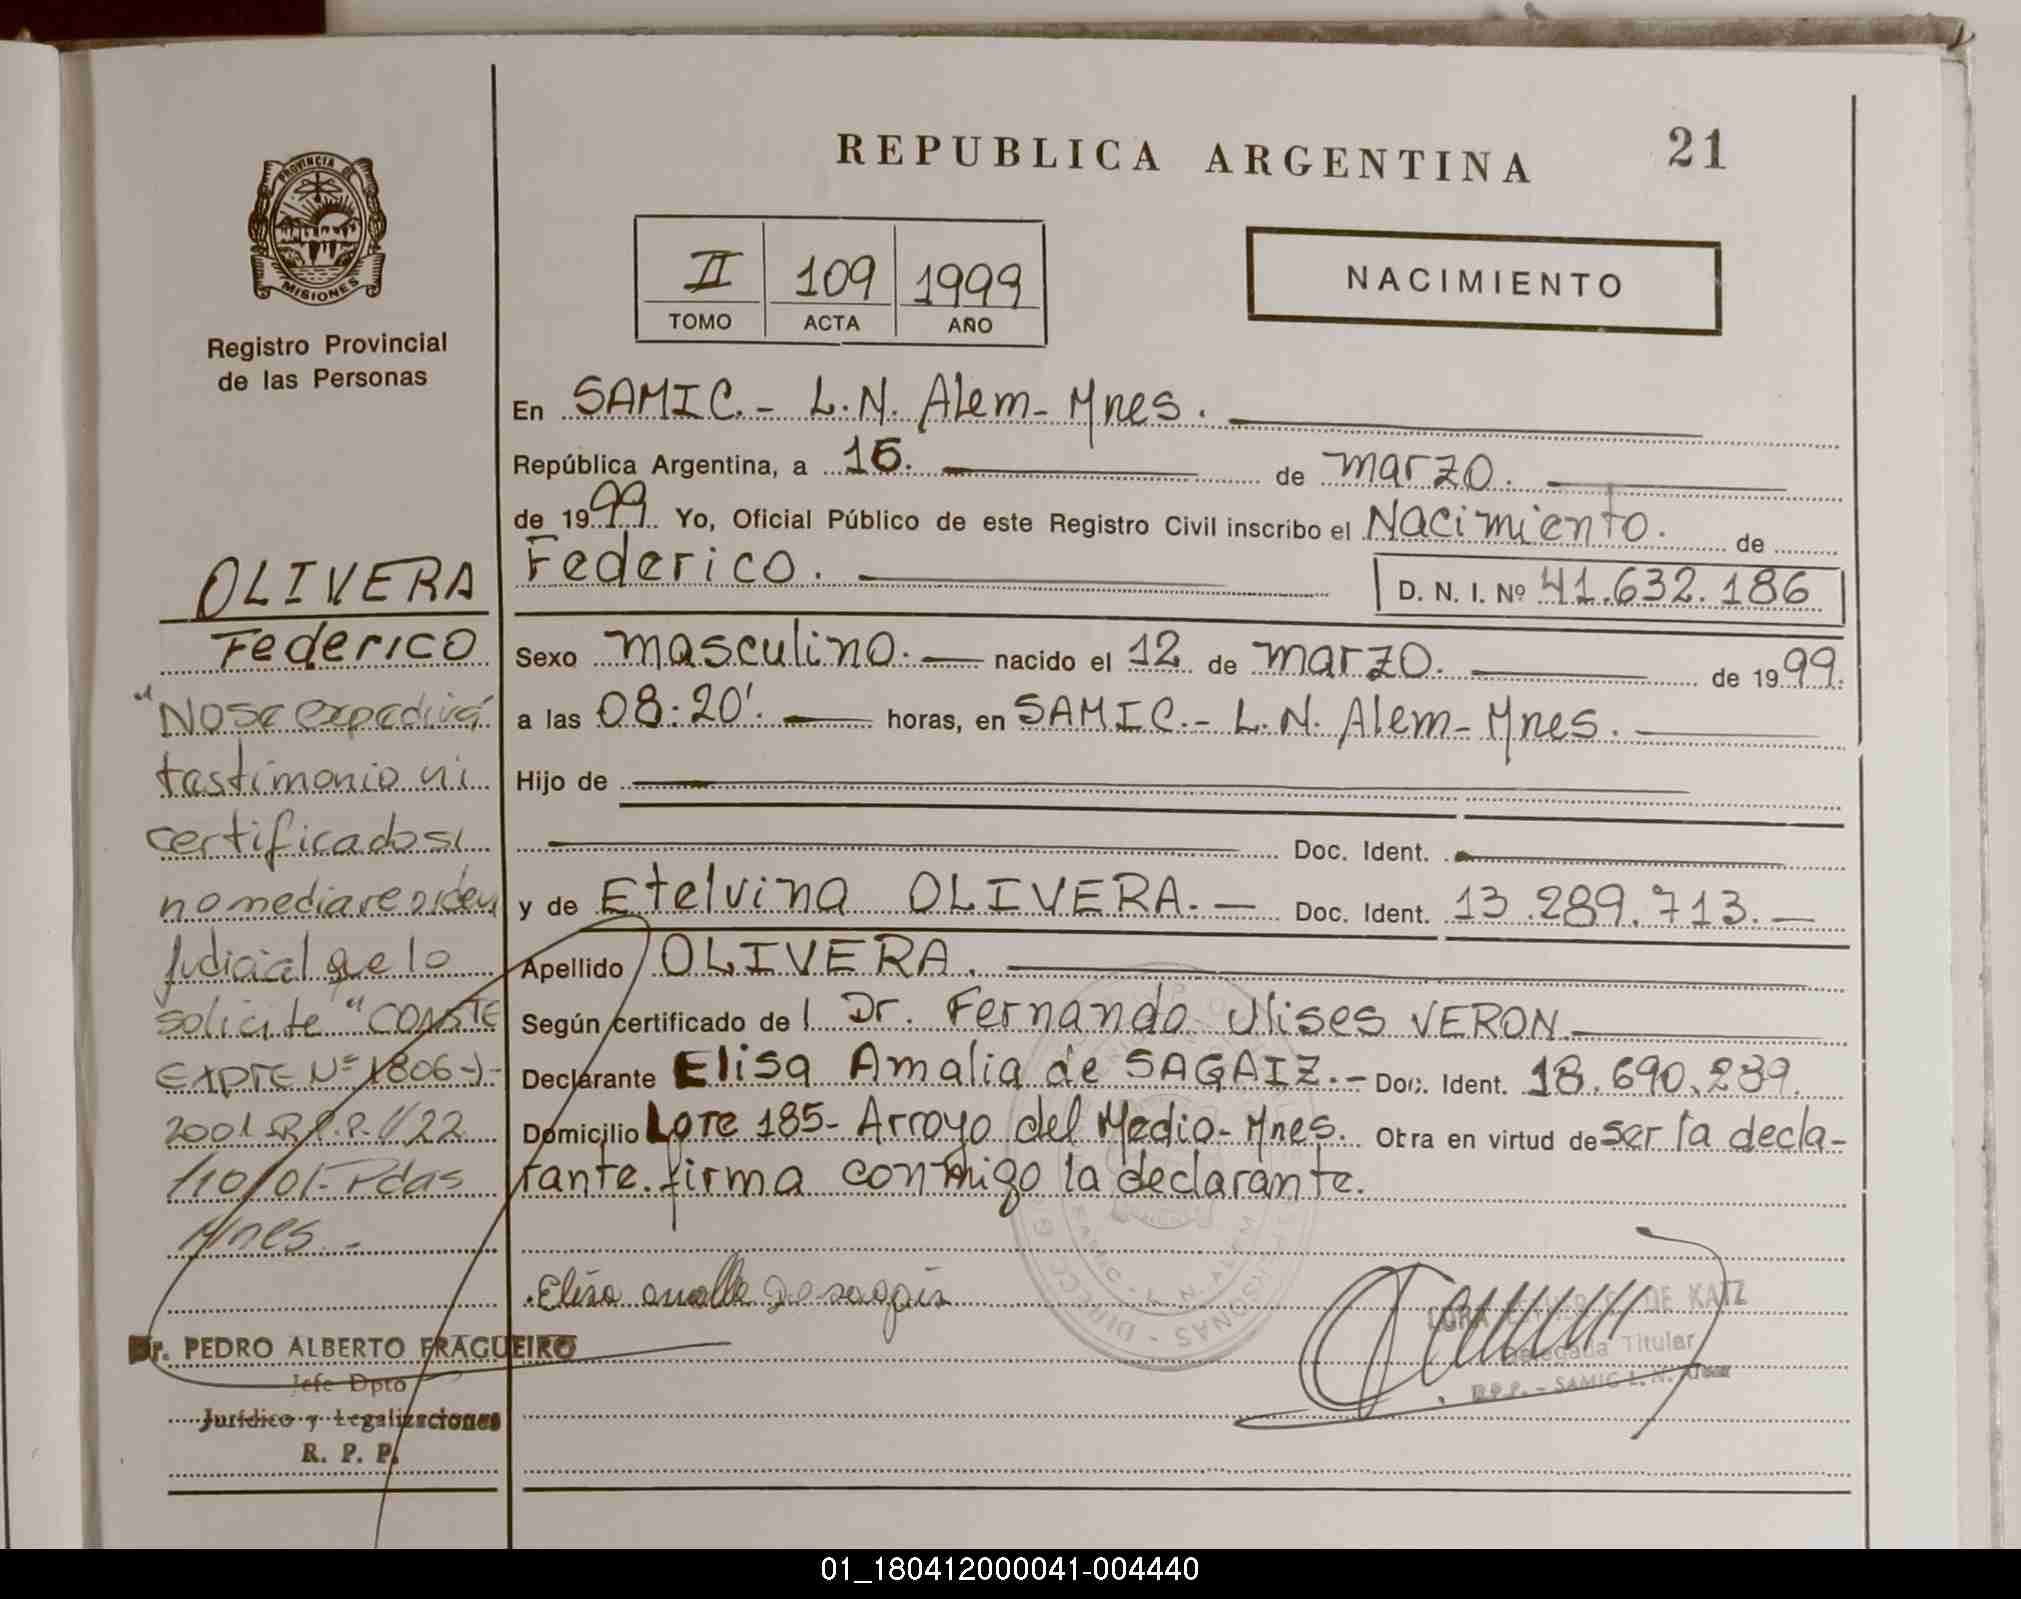 REPUBLICA ARGENTINA
21
PROVINCIA DE
MISIONES
Registro Provincial
de las Personas
II 109 1999
TOMO ACTA AÑO
NACIMIENTO
En SAMIC.- L.N. Alem- Mnes.
República Argentina, a 15. de marzo.
de 1999. Yo, Oficial Público de este Registro Civil inscribo el Nacimiento. de
Federico.
D. N. I. Nº 41.632.186
Sexo masculino. nacido el 12 de marzo. de 1999.
a las 08:20'. horas, en SAMIC.- L.N. Alem- Mnes.
Hijo de
Doc. Ident.
y de Etelvina OLIVERA.- Doc. Ident. 13.289.713.-
Apellido OLIVERA.
Según certificado del Dr. Fernando Ulises VERON.
Declarante Elisa Amalia de SAGAIZ.- Doc. Ident. 18.690.239.
Domicilio Lote 185- Arroyo del Medio- Mnes. Obra en virtud de ser la decla-
rante. firma conmigo la declarante.
OLIVERA
Federico
"No se expedirá
testimonio ni
certificado si
no media
judicial que lo
solicite" CONSTE
EXPTE Nº 1806-J-
2001 R.P.P. 22
/10/01- Pdas
Mnes.-
Dr. PEDRO ALBERTO FRAGUEIRO
Jefe Dpto
Jurídico y Legalizaciones
R. P. P.
DE KATZ
Delegada Titular
R.P.P. - SAMIC L. N. Alem
01_180412000041-004440